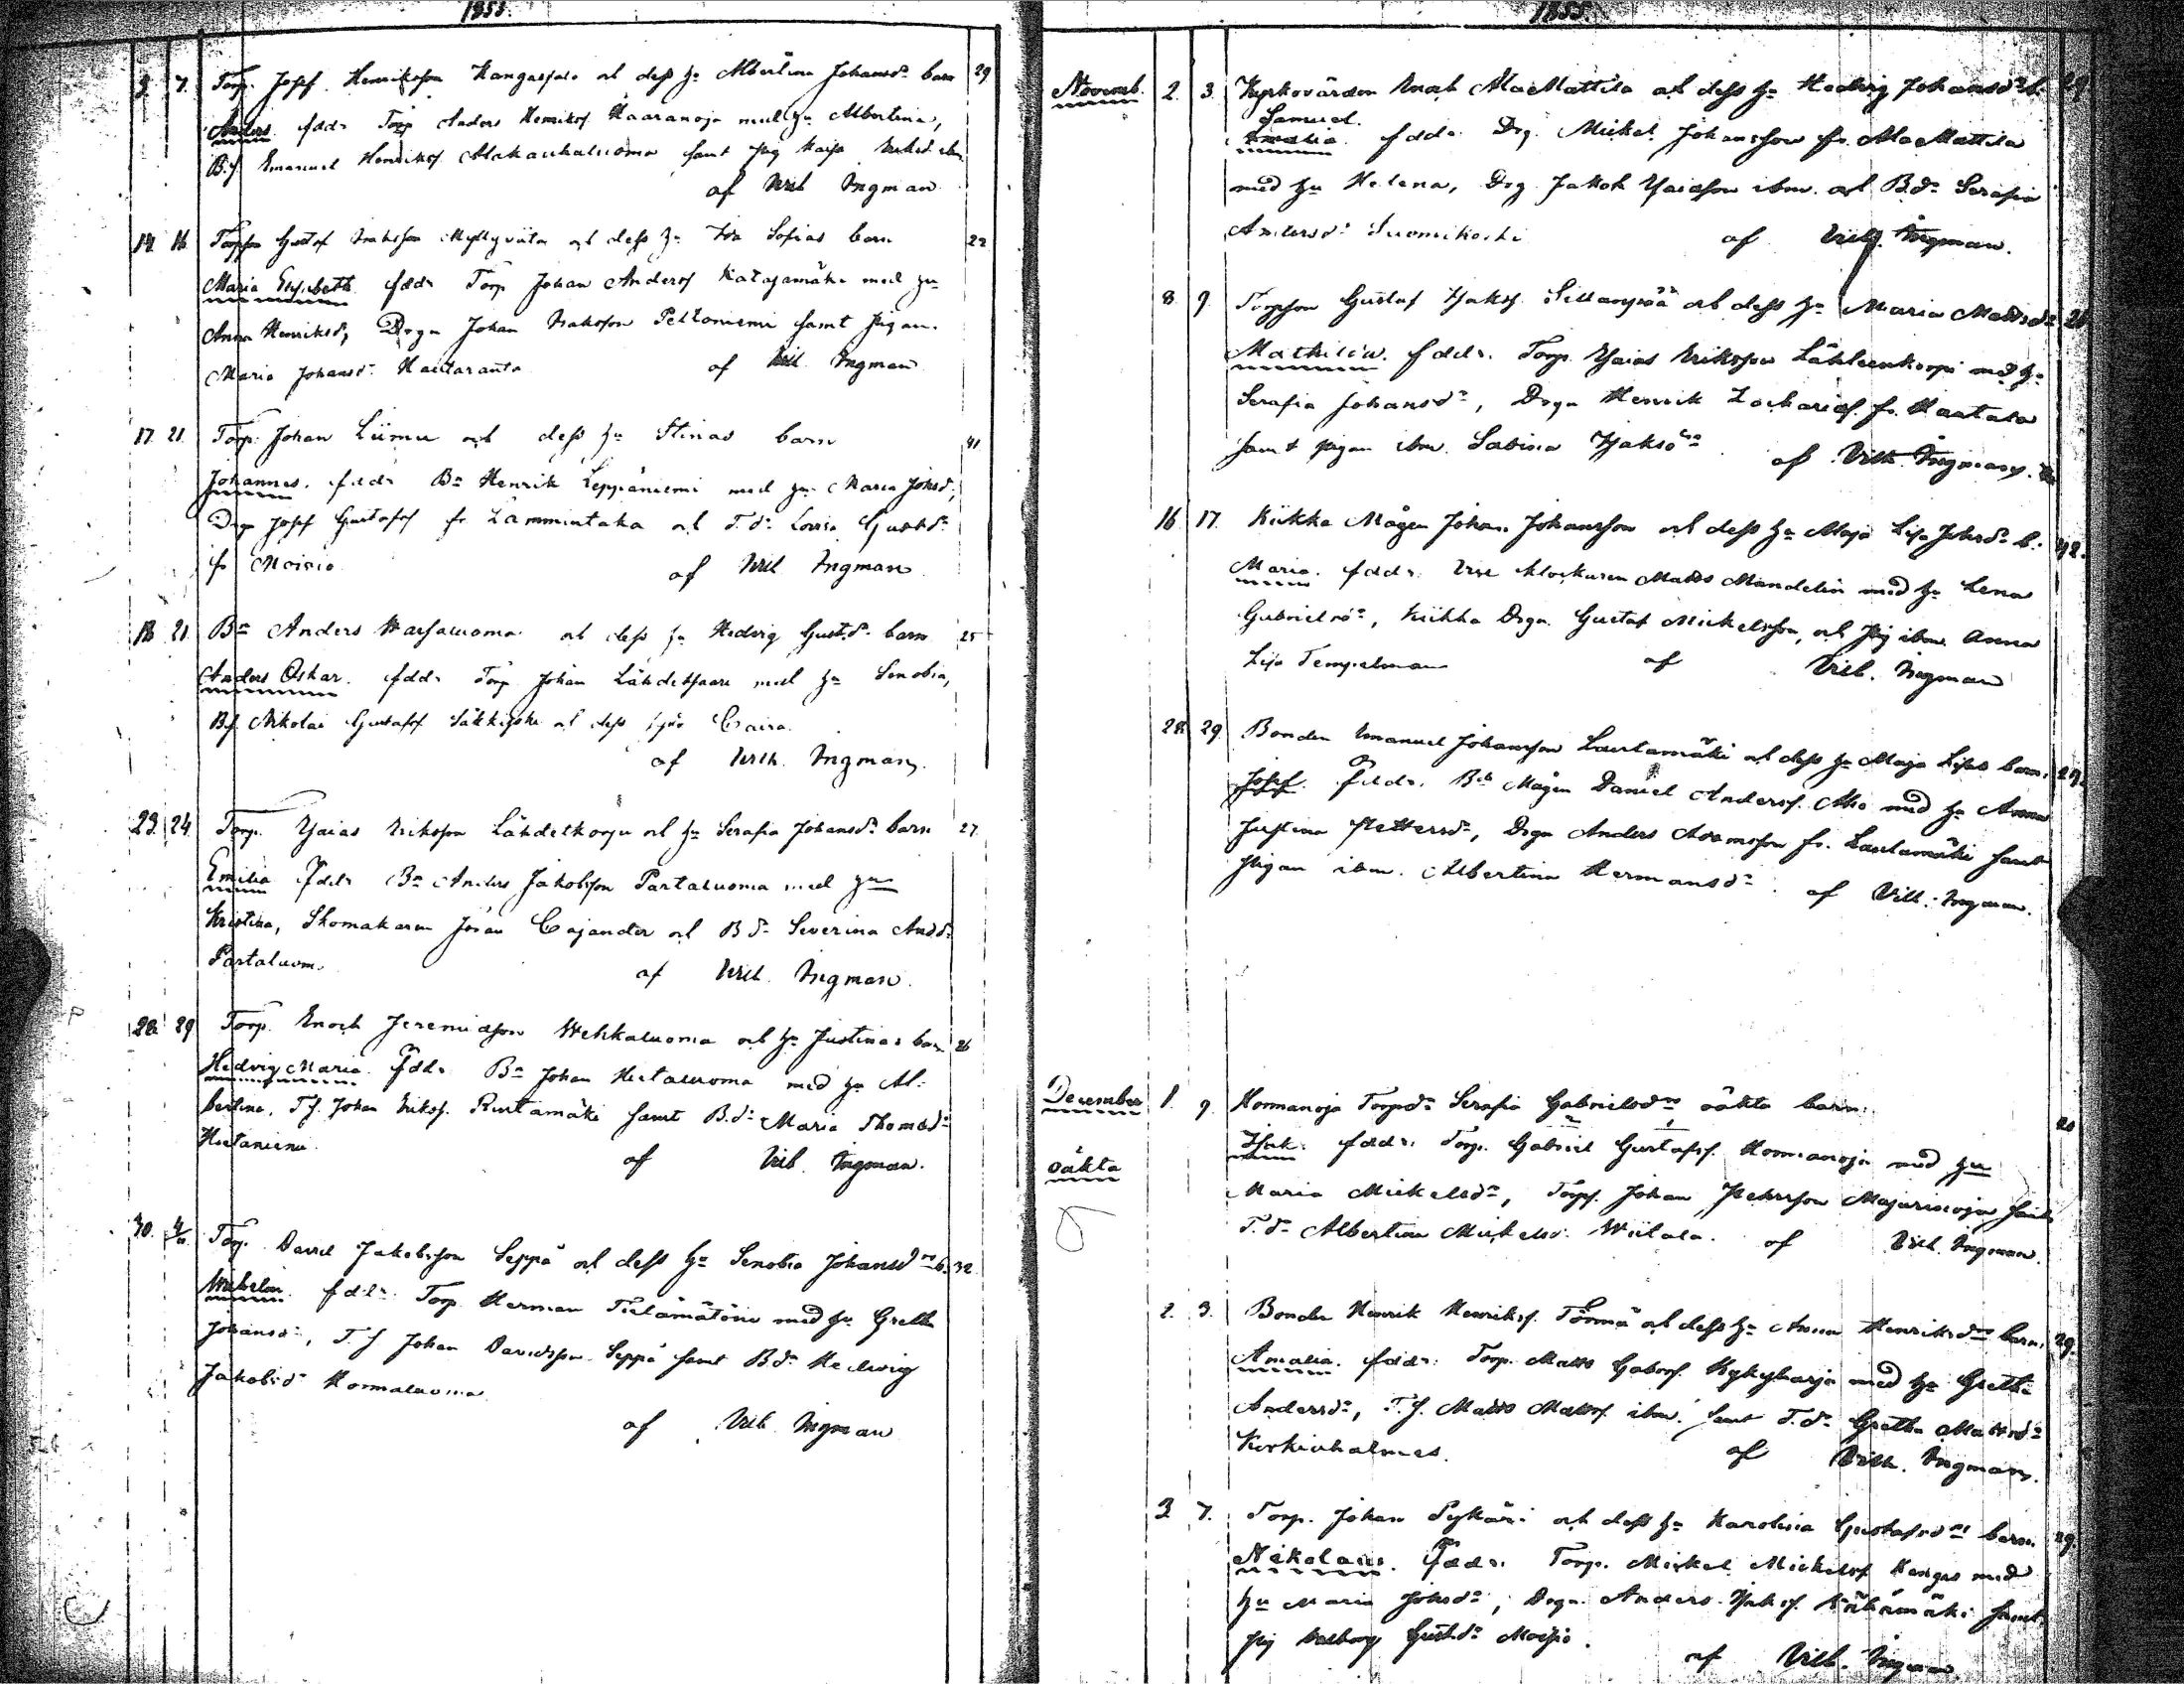 1855.
3. 7. Torp. Josef Henriksson Kangassalo och dess hu Albertina Johansdr barn 29
Anders. fddr Torp Anders Henrikss. Haaranoja med hu Albertina,
B.S. Emanuel Henrikss. Alakauhaluoma samt Pig Kaisa
af Vilh Ingman
14 16 Torpson Gustaf Isaksson Myllyviita och dess hu Ida Sofias barn 22
Maria Elisabeth fddr Torp Johan Anderss Katajamäki med hu
Anna Henriksdr, Drgn Johan Isaksson Peltoniemi samt Pigan
Maria Johansdr Hautaranta af Vilh Ingman
17 21. Torp. Johan Liimu och dess hu Stinas barn 41
Johannes. fddr Bn Henrik Leppäniemi med hu Maria Johsdr,
Drgn Josef Gustafss fr Lammintaka och T.dr Lovisa Gustdr
fr Moisio. af Vilh Ingman
18 21 Bn Anders Warsaluoma och dess hu Hedvig Gustdr barn 25
Anders Oskar. fddr Torp Johan Lähdeksaari med hu Senobia,
BS. Nikolai Gustafss Säkkijski och dess Caisa.
af Vilh. Ingman.
23 24 Torp. Esaias Eriksson Lähdekorpi och hu Serafia Johansdr barn 27
Emilia fddr Bn Anders Jakobsson Partaluoma med hu
Kristina, Skomakaren Johan Cajander och B dr Severina Andr
Partaluom. af Vilh. Ingman.
28 29 Torp. Enoch Jeremiasson Wehkaluoma och hu Justinas barn 26
Hedvig Maria. fddr Bn Johan Hietaluoma med hu Al-
bertina, T.S. Johan Erikss. Rintamäki samt B.dr Maria Thomasdr
Hietaniemi. af Vilh. Ingman.
30. 4/11 Torp. David Jakobsson Seppä och dess hu Senobia Johansdrs b. 32
Wilhelm. fddr. Torp. Herman Tielämätöin med hu Greth
Johansdr, T.S Johan Davidsson Seppä samt Bdr Hedvig
Jakobsdr Hormaluoma
af Vilh Ingman
1855.
Novemb. 2. 3. Kyrkovärden Enoch AlaMattila och dess hu Hedvig Johansdrs b. 29
Samuel.
fddr. Drg. Mickel Johansson fr. AlaMattila
med hu Helena, Drg Jakob Esaiasson ibm. och B.dr Serafia
Andersdr Suomikoski af Vilh. Ingman.
8 9. Torpson Gustaf Isakss. Sillanpää och dess hu Maria Mattsdr 28
Mathilda. fddr. Torp. Esaias Eriksson Lähteenkorpi med hu
Serafia Johansdr, Drgn Henrik Zachariass. fr. Hautala
samt pigan ibm. Sabina Isaksdr af Vilh. Ingman.
16 17. Kiikka Mågen Johan Johansson och dess hu Maja Lisa Johsdr b. 42.
Maria. fddr. Vice klockaren Matts Mandelin med hu Lena
Gabrielsdr, Kiikka Drgn Gustaf Mickelsson, och Pig ibm. Anna
Lisa Tempelman af Vilh. Ingman
28. 29. Bonden Emanuel Johansson Lautamäki och dess hu Maja Lisas barn. 29.
Josef. fddr. Bds Mågen Daniel Anderss. Aho med hu Anna
Justina Pettersdr, Drgn Anders Adamsson fr. Lautamäki samt
pigan ibm. Albertina Hermansdr. af Vilh. Ingman.
December 1. 9. Hormanoja Torpdr Serafia Gabrielsdrs oäkta barn. 20
oäkta Isak. fddr. Torp. Gabriel Gustafss. Hormanoja med hu
Maria Mickelsdr, Torps. Johan Pehrsson Majurinoja samt
T.dr Albertina Mickelsdr. Wiitala. af Vilh. Ingman.
2. 3. Bonden Henrik Henrikss. Törmä och dess hu Anna Henriksdrs barn. 29.
Amalia. fddr. Torp. Matts Gabrss. Kykyharju med hu Greta
Andersdr, T.S. Matts Mattss. ibm. samt T.dr Gretha Mattsdr
Korkiaholmes. af Vilh. Ingman.
3 7. Torp. Johan Pykäri och dess hu Karolina Gustafsdrs barn. 29.
Nikolaus. fddr. Torp. Mickel Mickelss. Kangas med
hu Maria Johsdr, Drgn. Anders Isakss. Kähämäki samt
pig Valborg Gustdr Moisio.
af Vilh. Ingman.